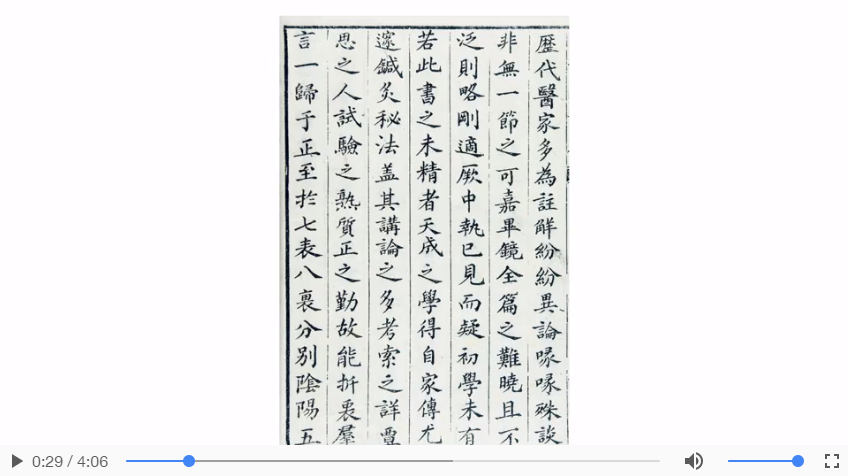 歷代醫家多為註觧紛紛異論喙喙殊談
非無一節之可嘉畢鏡全篇之難曉且不
泛則略剛適厥中執已見而疑初學未有
若此書之未精者天成之學得自家傳尤
邃鍼灸秘法盖其講論之多考索之詳覃
思之人試驗之熟質正之勤故能折衷羣
言一歸于正至於七表八裏分別陰陽五
0:29 / 4:06